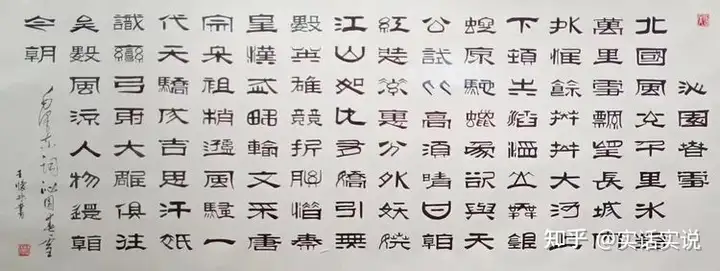 沁園春雪
北國風光千里冰封
萬里雪飄望長城內
外惟餘莽莽大河上
下頓失滔滔山舞銀
蛇原馳蠟象欲與天
公試比高須晴日看
紅裝素裹分外妖嬈
江山如此多嬌引無
數英雄競折腰惜秦
皇漢武略輸文采唐
宗宋祖稍遜風騷一
代天驕成吉思汗只
識彎弓射大雕俱往
矣數風流人物還看
今朝
毛澤東詞沁園春雪
知乎 @实话实说